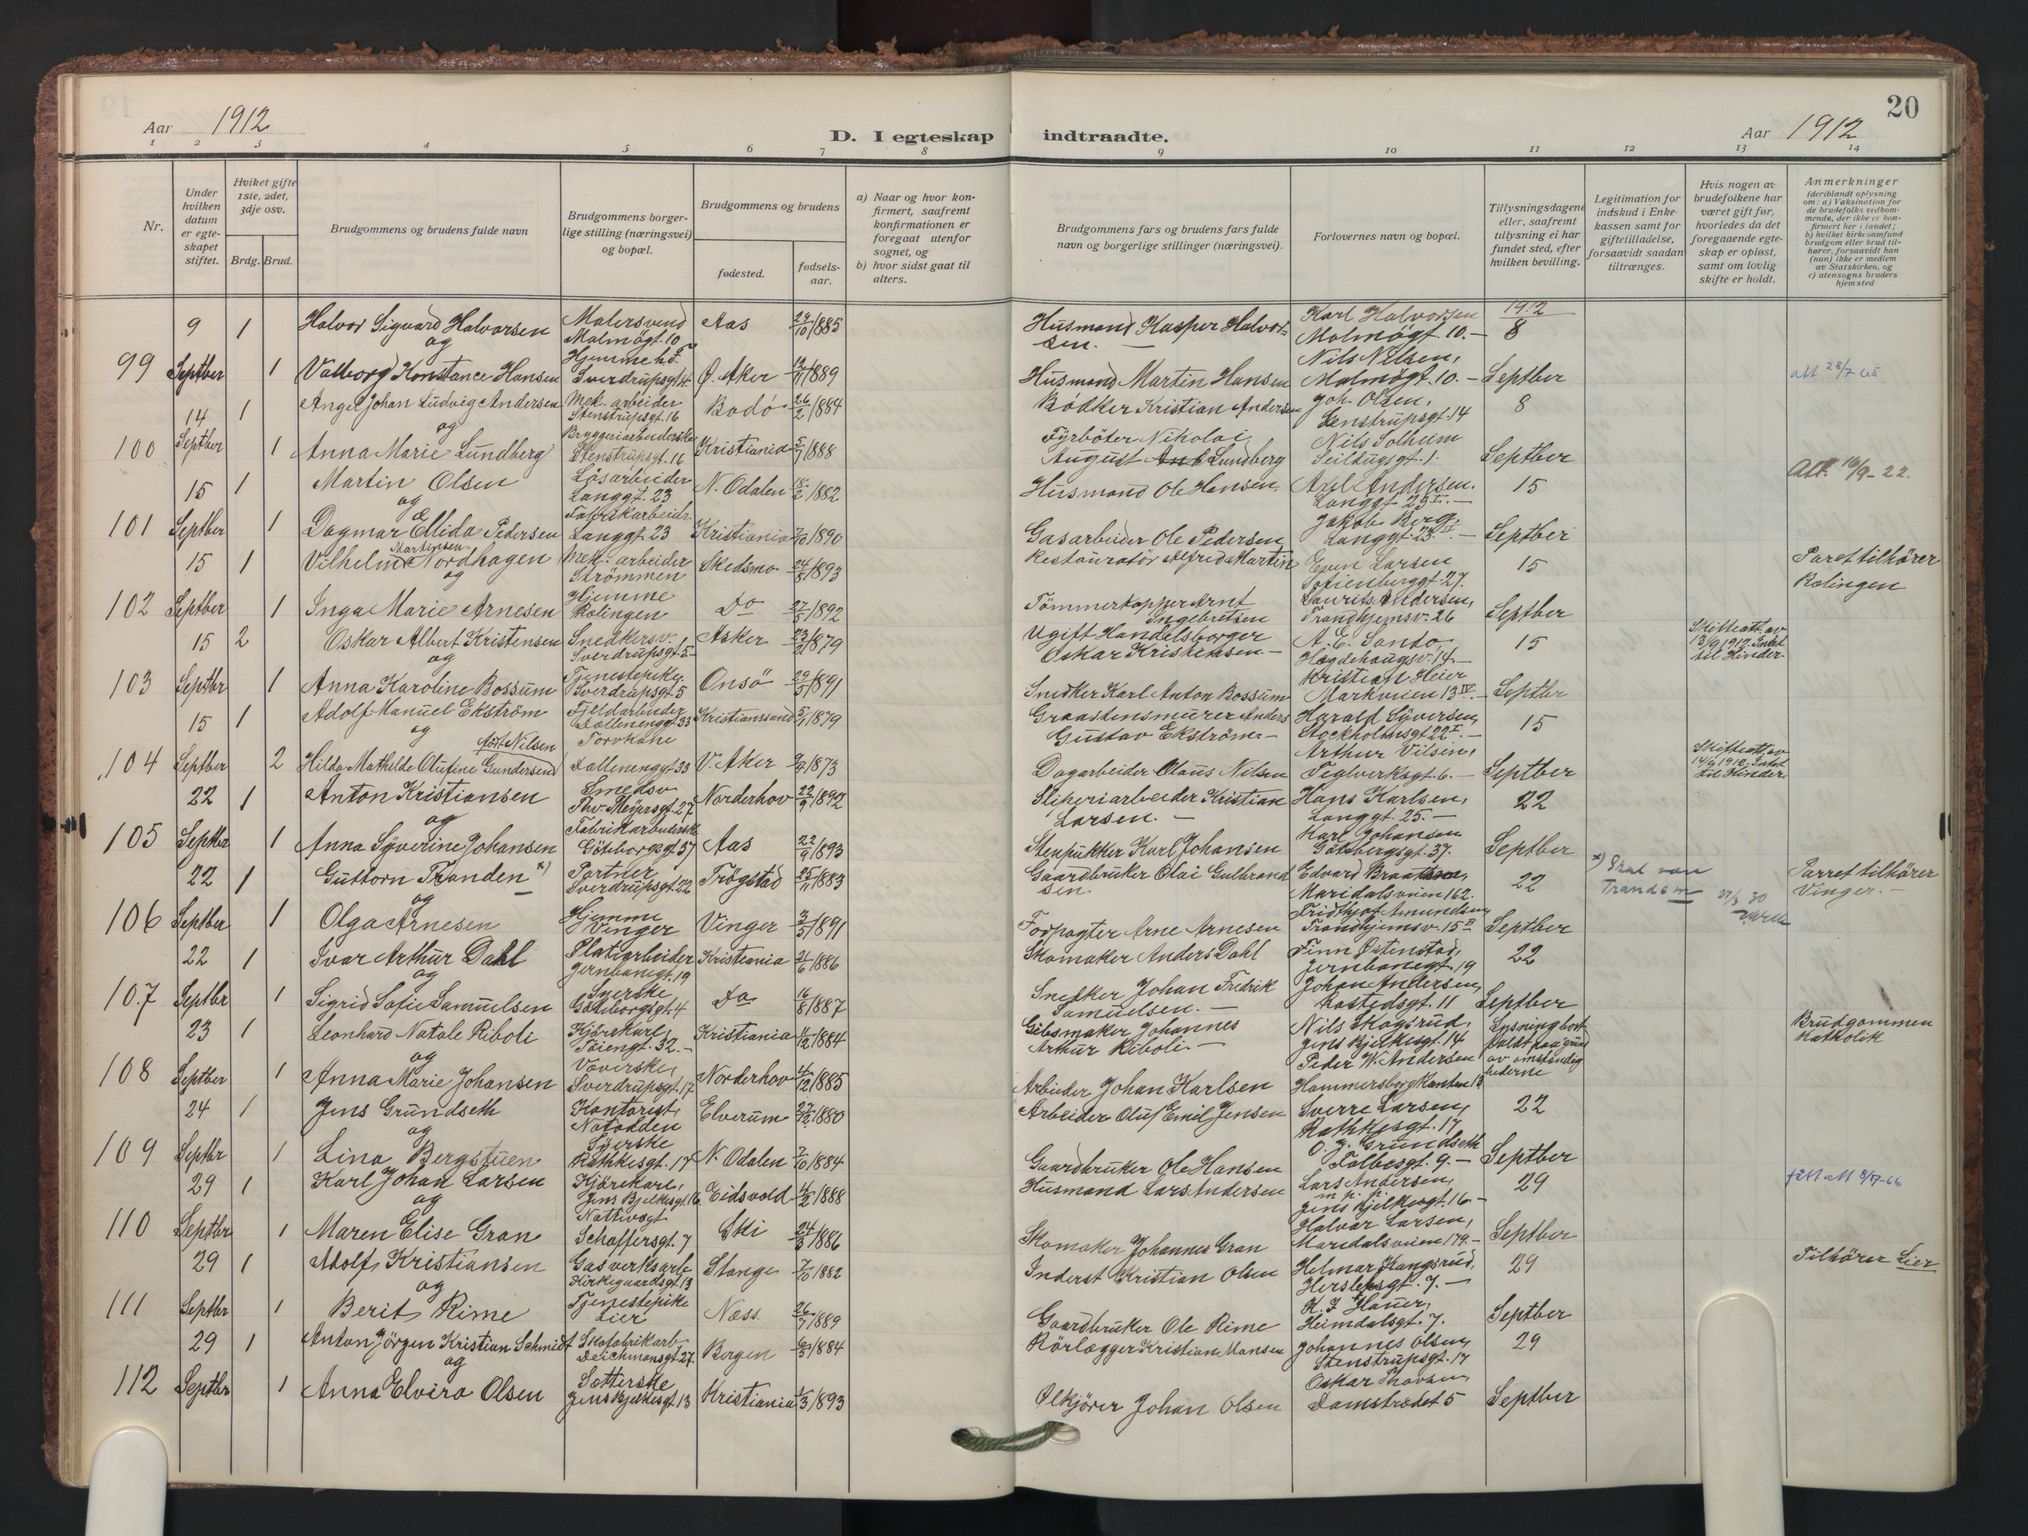 20
Aar 1912
D. I egteskap indtraadte.
Aar 1912
1 2 3 4 5 6 7 8 9 10 11 12 13 14
Nr.
Under hvilken datum er egteskapet stiftet.
Hviket gifte 1ste, 2det, 3dje osv.
Brdg. Brud.
Brudgommens og brudens fulde navn
Brudgommens borgerlige stilling (næringsvei) og bopæl.
Brudgommens og brudens
fødested.
fødselsaar.
a) Naar og hvor konfirmert, saafremt konfirmationen er foregaat utenfor sognet, og
b) hvor sidst gaat til alters.
Brudgommens fars og brudens fars fulde navn og borgerlige stillinger (næringsvei).
Forlovernes navn og bopæl.
Tillysningsdagene eller, saafremt tillysning ei har fundet sted, efter hvilken bevilling.
Legitimation for indskud i Enkekassen samt for giftetilladelse, forsaavidt saadan tiltrænges.
Hvis nogen av brudefolkene har været gift før, hvorledes da det foregaaende egteskap er opløst, samt om lovlig skifte er holdt.
Anmerkninger
(deriblandt oplysning om: a) Vaksination for de brudefolks vedkommende, der ikke er konfirmert her i landet; b) hvilket kirkesamfund brudgom eller brud tilhører, forsaavidt han (hun) ikke er medlem av Statskirken, og c) utensogns bruders hjemsted
99
9 Septber 1
Halvor Sigvard Halvorsen
Malersvend Malmøgt. 10
Aas 29/10 1885
Husmand Kasper Halvorsen.
Karl Halvorsen Malmøgt. 10.
1912
8
og
1 Valborg Konstance Hansen
Hjemme h. F. Sverdrupsgt 4
Ø. Aker 12/11 1889
Husmand Martin Hansen
Nils Nilsen, Malmøgt. 10.
Septber
att 28/7 65
100
14 Septber 1
Angel Johan Ludvig Andersen
Mek. arbeider Stenstrupsgt. 16
Bodö 26/2 1884
Bödker Kristian Andersen
Joh. Olsen, Stenstrupsgt. 14
8
og
1 Anna Marie Lundberg
Bryggeriarbeiderske Stenstrupsgt. 16
Kristiania 5/7 1888
Fyrböter Nikolai August Lundberg
Nils Solhum Seildugsgt. 1.
Septber
101
15 Septber 1
Martin Olsen
Løsarbeider Langgt. 23
N. Odalen 18/2 1882
Husmand Ole Hansen
Axel Andersen. Langgt. 23 I.
15
Att. 16/9-22.
og
1 Dagmar Ellida Pedersen
Fabrikarbeids. Langgt. 23
Kristiania 7/10 1890
Gasarbeider Ole Pedersen
Jakob Berg. Langgt. 23 II
Septber
102
15 Septber 1
Vilhelm Martinsen Nordhagen
Mek. arbeider Strömmen
Skedsmo 24/8 1893
Restauratör Alfred Martin
Even Larsen Sofienberggt. 27.
15
Paret tilhörer Rælingen
og
1 Inga Marie Arnesen
Hjemme Rælingen
Do 27/5 1892
Tömmerkopper Arnt Ingebretsen
Laurits Andersen, Trondhjemsv. 26
Septber
103
15 Septbr 2
Oskar Albert Kristensen
Snedkersv. Sverdrupsgt. 5
Asker 23/2 1879
Ugift Handelsborger Oskar Kristensen
A. E. Sando, Hægdehaugsv. 14.
15
Skifteatt. av 13/9 1912. Intet til Hinder.
og
1 Anna Karoline Bossum
Tjenestepike. Sverdrupsgt. 5
Onsö 29/5 1891
Snedker Karl Anton Bossum
Kristian Heier Markveien 13 IV.
Septber
104
15 Septber 1
Adolf Manuel Ekström
Fjeldarbeider Dælenenggt. 33
Kristianssand 5/1 1879
Graastensmurer Anders Gustav Ekström
Harald Syversen, Stockholmsgt. 22 I.
15
og
2 Hilda Mathilde Olufine Gundersen födt Nilsen
Torvkone Dælenenggt 33
V. Aker 1873
Dagarbeider Olaus Nilsen
Arthur Vilsen, Teglverksgt. 6.
Septber
Skifteatt. av 14/9 1912. Intet til Hinder
105
22 Septber 1
Anton Kristiansen
Smedsv. Thv. Meyersgt. 27
Norderhov 22/9 1892
Sliperiarbeider Kristian Larsen.
Hans Karlsen, Langgt. 25.
22
og
1 Anna Syverine Johansen
Fabrikarbeidersk Göteborggt 37
Aas 22/9 1893
Stenpukker Karl Johansen
Karl Johansen Götebergsgt. 37.
Septber
106
22 Septber 1
Guttorn Tranden x)
Portner Sverdrupsgt. 22
Trögstad 25/11 1883
Gaardbruker Olai Gulbrandsen.
Edvard Braathen, Maridalsveien 162.
22
x) Skal være Trandem
27/3 30
Parret tilhörer Vinger.
og
1 Olga Arnesen
Hjemme Vinger
Vinger 3/5 1891
Forpagter Arne Arnesen
Fridthjof Amundsen, Trondhjemsv. 15 II
Septber
107
22 Septbr 1
Ivar Arthur Dahl
Platearbeider Jernbanegt. 19
Kristiania 21/6 1886
Skomaker Anders Dahl
Finn Östenstad, Jernbanegt. 19
22
og
1 Sigrid Sofie Samuelsen
Syerske Göteborgsgt. 4
Do 16/8 1887
Snekker Johan Fredrik Samuelsen.
Johan Andersen, Rostedsgt. 11
Septber
108
23 Septber 1
Leonhard Natale Riboli
Kjörekarl, Töiengt. 32.
Kristiania 11/12 1884
Gibsmaker Johannes Arthur Riboli
Nils Skogsrud, Jens Bjelkesgt. 14
Lysning bortfaldt paa grund av omstendighederne
Brudgommen Katholik
og
1 Anna Marie Johansen
Væverske, Sverdrupsgt. 17
Norderhov 4/12 1885
Arbeider Johan Karlsen
Peder W. Andersen Hammersborgkanten 13
109
24 Septbr 1
Jens Grundseth
Kontorist, Notodden
Elverum 27/12 1880
Arbeider Oluf Emil Jensen
Sverre Larsen, Rathkesgt. 17
22
og
1 Lina Bergstuen
Syerske Rathkesgt. 17
N. Odalen 7/10 1884
Gaardbruker Ole Hansen
O. J. Grundseth Falbesgt. 9.
Septber
110
29 Septbr 1
Karl Johan Larsen
Kjörekarl, Jens Bjelkesgt. 16.
Eidsvold 4/2 1888
Husmand Lars Andersen
Lars Andersen, m. p. p. Jens Bjelkesgt. 16.
29
födt att 8/7-66
og
1 Maren Elise Gran
Nattevagt Schæffersgt. 7
Ski 24/3 1886
Skomaker Johannes Gran
Halvar Larsen, Maridalsveien 179.
Septber
111
29 Septbr 1
Adolf Kristiansen
Gasverksarb. Kirkegaardsgt. 13
Stange 7/10 1882
Inderst Kristian Olsen
Helmar Haugsrud, Herslebsgt. 7.
29
Tilhörer Lier
og
1 Berit Rime
Tjenestepike Lier
Næss 26/7 1889
Gaardbruker Ole Rime
K. J. Hauer, Heimdalsgt. 7.
Septber
112
29 Septbr 1
Anton Jörgen Kristian Schmidt
Skofabrikarb, Deichmansgt. 27.
Bergen 1884
Rörlægger Kristian Monsen
Johannes Olsen, Stenstrupsgt. 17
29
og
1 Anna Elvira Olsen
Sætterske Jens Bjelkesgt. 13
Kristiania 1/3 1893
Ölkjörer Johan Olsen
Oskar Thorsen, Damstrædet 5
Septber